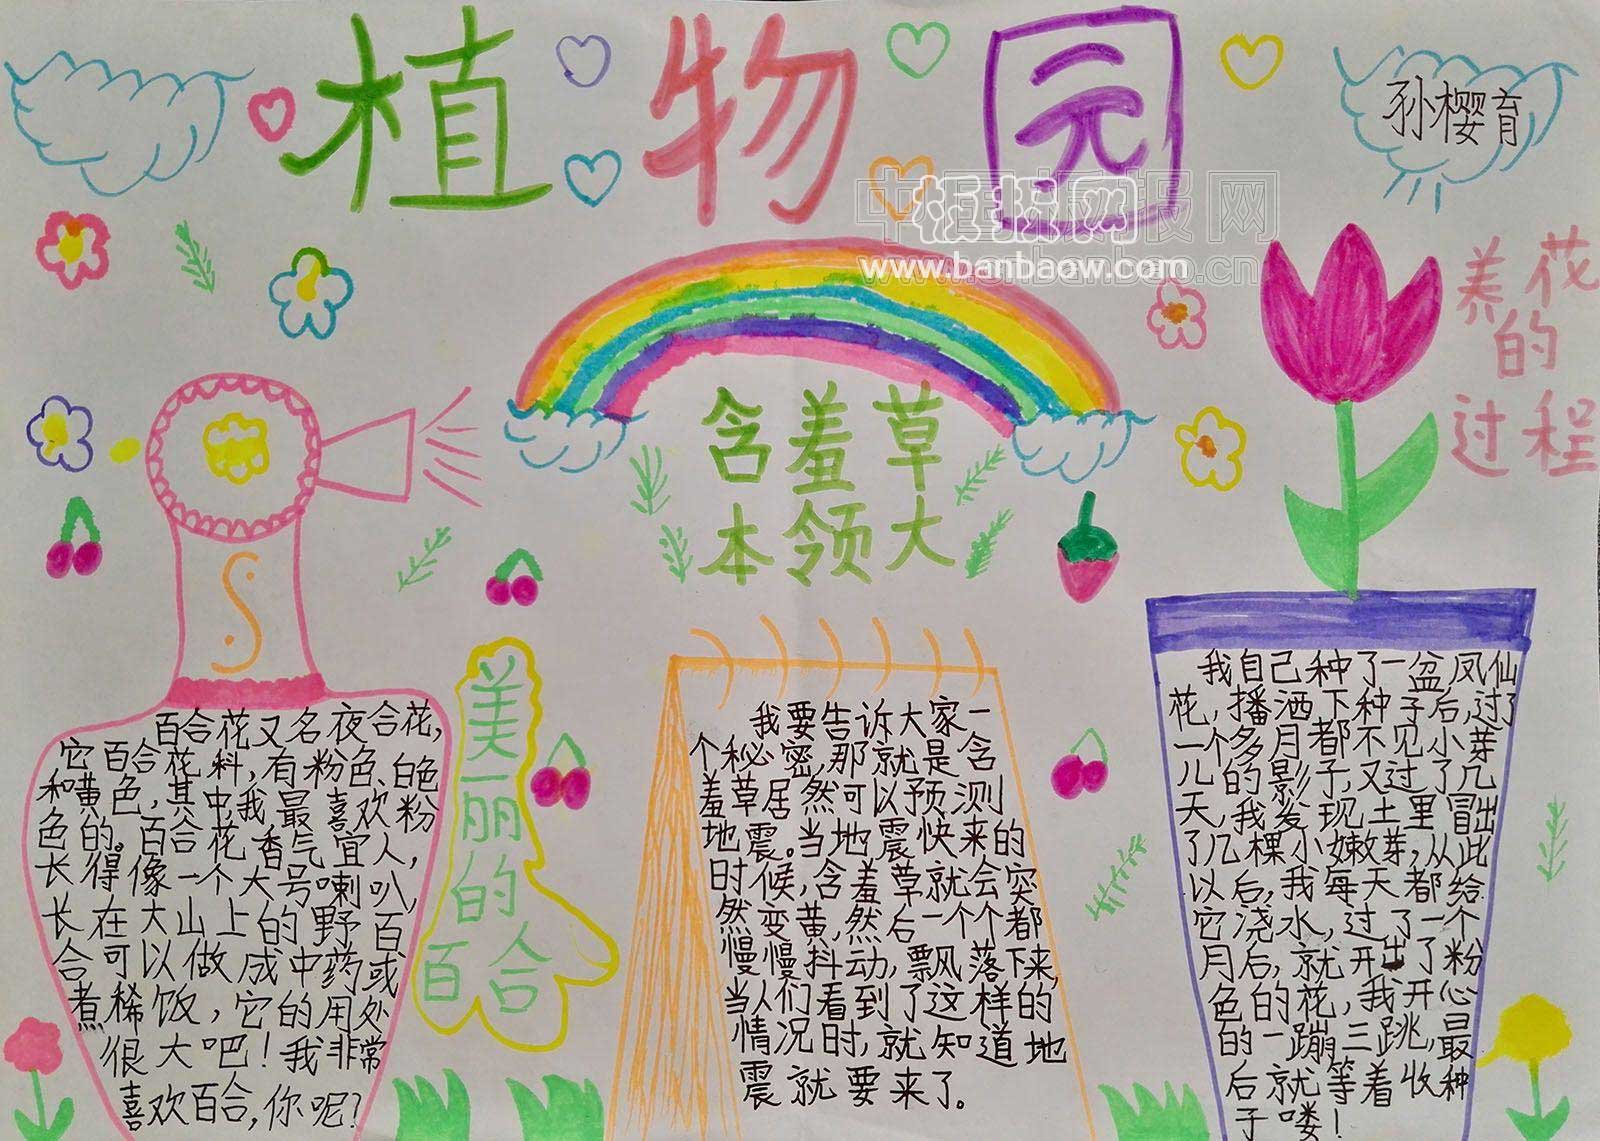 植物园
孙樱育
www.banbaow.com
养花
的
过程
含羞草
本领大
美丽的
百合
百合花又名夜合花,
它百合花科,有粉色、白色
和黄色,其中,我最喜欢粉
色的。百合花香气宜人,
长得像一个大号喇叭,
长在大山上的野百
合可以做成中药或
煮稀饭,它的用处
很大吧!我非常
喜欢百合,你呢?
我要告诉大家一
个秘密,那就是含
羞草居然可以预测
地震。当地震快来的
时候,含羞草就会突
然变黄,然后一个个都
慢慢抖动,飘落下来,
当人们看到了这样的
情况时,就知道地
震就要来了。
我自己种了一盆凤仙
花,播洒下种子后,过了
一个多月都不见小芽
儿的影子,又过了几
天,我发现土里冒出
了几棵小嫩芽,从此
以后,我每天都给
它浇水,过了一个
月后,就开出了粉
色的花,我开心
的一蹦三跳,最
后就等着收种
子喽!